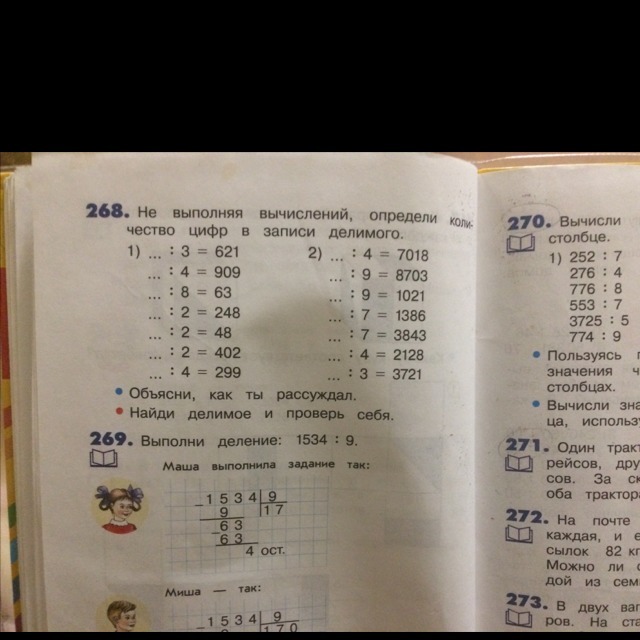 268. Не выполняя вычислений, определи коли-
чество цифр в записи делимого.
1) ... : 3 = 621
... : 4 = 909
... : 8 = 63
... : 2 = 248
... : 2 = 48
... : 2 = 402
... : 4 = 299
2) ... : 4 = 7018
... : 9 = 8703
... : 9 = 1021
... : 7 = 1386
... : 7 = 3843
... : 4 = 2128
... : 3 = 3721
• Объясни, как ты рассуждал.
• Найди делимое и проверь себя.
269. Выполни деление: 1534 : 9.
Маша выполнила задание так:
1534 9
9 17
63
63
4 ост.
Миша — так:
1534 9
170
270. Вычисли
столбце.
1) 252 : 7
276 : 4
776 : 8
553 : 7
3725 : 5
774 : 9
• Пользуясь
значения
столбцах.
• Вычисли
ца,
271. Один
рейсов,
сов. За
оба
272. На почте
каждая, и
сылок 82
Можно ли
дой из
273. В двух
ров. На